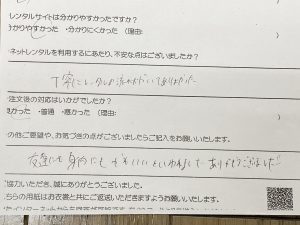 レンタルサイトは分かりやすかったですか？
分かりやすかった ・分かりにくかった （理由:
ネットレンタルを利用するにあたり、不安な点はございましたか？
丁寧にレンタルの
注文後の対応はいかがでしたか？
良かった ・普通 ・悪かった （理由:
の他ご要望や、お気づきの点がございましたらご記入をお願いいたします。
友達にも身内にもかわいいといわれました ありがとうございました!!
協力いただき、誠にありがとうございました。
ちらの用紙はお衣裳と共にご返送いただきますようお願いいたします。